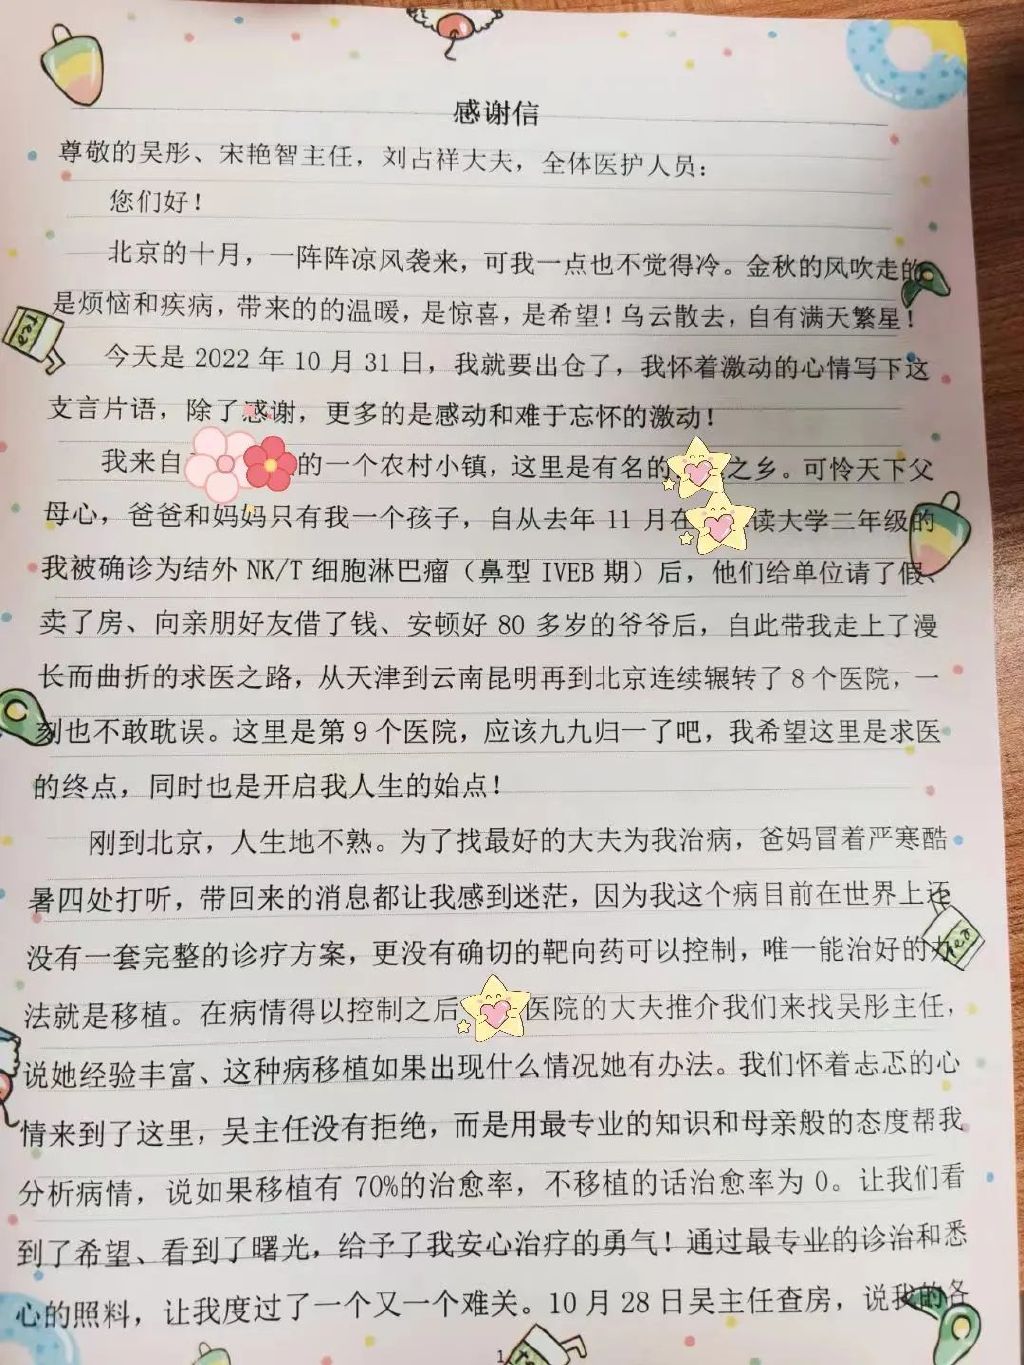 感谢信
尊敬的吴彤、宋艳智主任，刘占祥大夫，全体医护人员：
您们好！
北京的十月，一阵阵凉风袭来，可我一点也不觉得冷。金秋的风吹走的
是烦恼和疾病，带来的的温暖，是惊喜，是希望！乌云散去，自有满天繁星！
今天是 2022 年 10 月 31 日，我就要出仓了，我怀着激动的心情写下这
支言片语，除了感谢，更多的是感动和难于忘怀的激动！
我来自的一个农村小镇，这里是有名的之乡。可怜天下父
母心，爸爸和妈妈只有我一个孩子，自从去年 11 月在读大学二年级的
我被确诊为结外 NK/T 细胞淋巴瘤（鼻型 IVEB 期）后，他们给单位请了假、
卖了房、向亲朋好友借了钱、安顿好 80 多岁的爷爷后，自此带我走上了漫
长而曲折的求医之路，从天津到云南昆明再到北京连续辗转了 8 个医院，一
刻也不敢耽误。这里是第 9 个医院，应该九九归一了吧，我希望这里是求医
的终点，同时也是开启我人生的始点！
刚到北京，人生地不熟。为了找最好的大夫为我治病，爸妈冒着严寒酷
暑四处打听，带回来的消息都让我感到迷茫，因为我这个病目前在世界上还
没有一套完整的诊疗方案，更没有确切的靶向药可以控制，唯一能治好的办
法就是移植。在病情得以控制之后医院的大夫推介我们来找吴彤主任，
说她经验丰富、这种病移植如果出现什么情况她有办法。我们怀着忐忑的心
情来到了这里，吴主任没有拒绝，而是用最专业的知识和母亲般的态度帮我
分析病情，说如果移植有 70%的治愈率，不移植的话治愈率为 0。让我们看
到了希望、看到了曙光，给予了我安心治疗的勇气！通过最专业的诊治和悉
心的照料，让我度过了一个又一个难关。10 月 28 日吴主任查房，说我的各
1